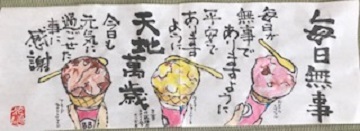 毎日無事
毎日が
無事で
ありますように
平安で
ありますように
天地萬歳
今日も
元気に
過ごせた
事に
感謝